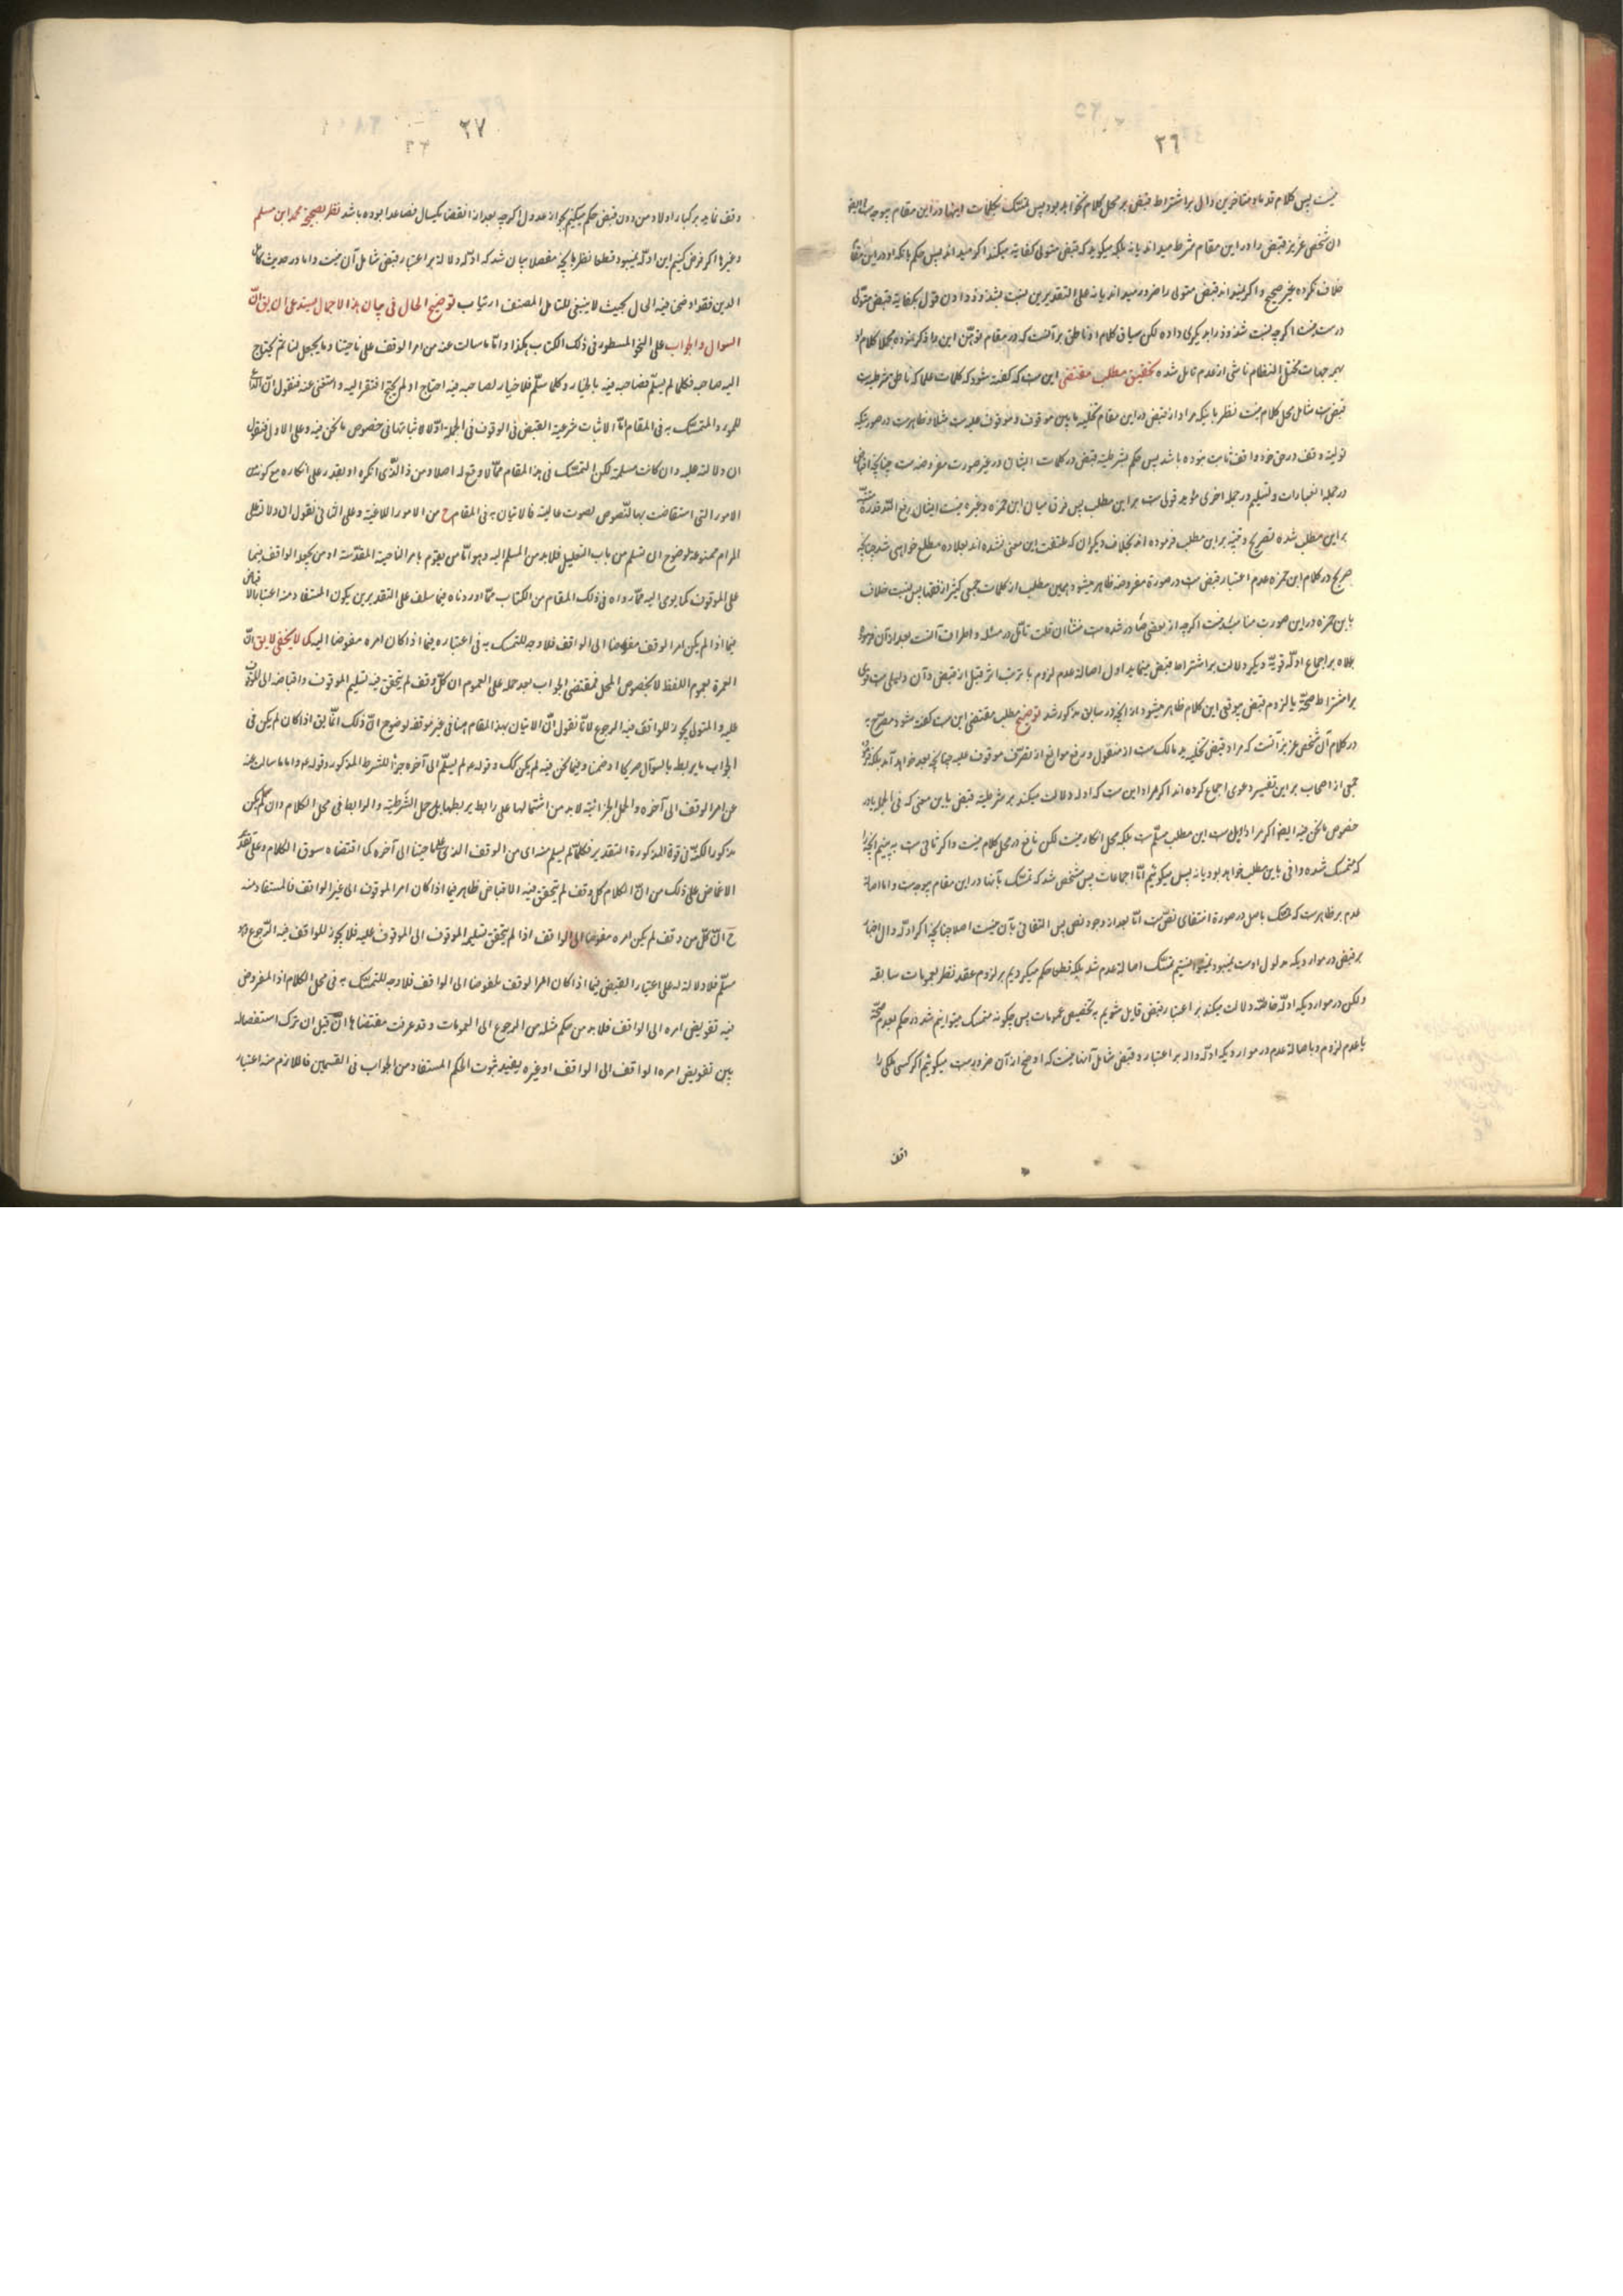 ٢٦
نیست پس کلام قدما و متاخرین دال بر اشتراط قبض بر محل کلام نخواهد بود پس تمسک بکلمات اینها در این مقام بیوجه است ایضا
ان شخص عزیز قبض را در این مقام شرط میداند یا نه بلکه میگوید که قبض متولی کفایة میکند اگر میداند پس حکم بانکه او در این مقام
خلاف نکرده غیر صحیح و اگر نمیداند قبض متولی را ضرور نمیداند یا نه علی التقدیرین نسبت شذوذ دادن قول بکفایة قبض متولی
درست نیست اگر چه نسبت شذوذ را بدیگری داده لکن سیاق کلام او ناطق بر آنست که در مقام توهین این را ذکر نموده مجملا کلام او
بهمه جهات مختل النظام ناشی از عدم تامل شده تحقیق مطلب مقتضی این است که گفته شود که کلمات علما که ناطق بشرطیت
قبض است شامل محل کلام نیست نظر باینکه مراد از قبض در این مقام تخلیه مابین موقوف و موقوف علیه است مثلا و ظاهر است در صورتیکه
تولیة وقف در حق خود واقف ثابت بوده باشد پس حکم بشرطیة قبض در کلمات ایشان در غیر صورت مفروضه است چنانچه اقباض
در جمله العبارات و تسلیم در جمله اخری مؤید قوی است بر این مطلب پس فرق میان ابن حمزه و غیره نیست ایشان رفع الله قدره
بر این مطلب شده تصریح و تنبیه بر این مطلب فرموده اند بخلاف دیگران که ملتفت این معنی نشده اند بعلاوه مطلع خواهی شد چنانچه
صریح در کلام ابن حمزه عدم اعتبار قبض است در صورة مفروضه ظاهر میشود همین مطلب از کلمات جمعی کثیر از فقها پس نسبت خلاف
بابن حمزه در این صورت مناسب نیست اگر چه از بعضی صادر شده است منشا ان قلت تامل در مسئله و اطراف آنست بعد از آن فرموده
علاوه بر اجماع ادلّه قویّه دیگر دلالت بر اشتراط قبض مینماید اول اصالة عدم لزوم با ترتب اثر قبل از قبض و آن دلیلی است قوی
بر اشتراط صحّة یا لزوم قبض بیوقعی این کلام ظاهر میشود از آنچه در سابق مذکور شد توضیح مطلب مقتضی این است گفته شود مصرّح به
در کلام آن شخص عزیز آنست که مراد قبض تخلیه ید مالک است از منقول و رفع موانع از تصرّف موقوف علیه چنانچه بعد خواهد آمد بلکه
جمعی از اصحاب بر این تفسیر دعوی اجماع کرده اند اگر مراد این است که ادله دلالت میکند بر شرطیة قبض باین معنی که فی الجمله یا در
خصوص مانحن فیه ایضا اگر مراد اول است این مطلب مسلّم است بلکه محل انکار نیست لکن نافع در محل کلام نیست و اگر ثانی است به بینیم آنچه
که متمسک شده وافی باین مطلب خواهد بود یا نه پس میگوئیم امّا اجماعات پس مشخص شد که تمسّک بآنها در این مقام بیوجه است و اما اصالة
عدم بر ظاهر است که تمسّک باصل در صورة انتفای نصّ است امّا بعد از وجود نص پس التفاتی بآن نیست اصلا چنانچه اگر ادلّه دال اعتبار
بر قبض در مواردیکه مدلول اوست نمیبود نمیتوانستیم متمسک اصالة عدم شد بلکه قطعا حکم میکردیم بر لزوم عقد نظر بعمومات سابقه
ولکن در مواردیکه ادلّه خاصّه دلالت میکند بر اعتبار قبض قایل شویم به تخصیص عمومات پس چگونه متمسک میتوانیم شد در حکم بعدم صحّة
یا عدم لزوم و باصالة عدم در مواردیکه ادلّه داله بر اعتبار و قبض شامل آنها نیست که اوضح از آن ضرور است میگوئیم اگر کسی ملکی را
٢٧
وقف نماید بر کبار اولاد من دون قبض حکم میکنیم بجواز عدول اگرچه بعد از انقضا یکسال فصاعدا بوده باشد نظر بصحیحة محمد ابن مسلم
وغیرها اگر فرض کنیم این ادلّه نمیبود قطعا نظر بانچه مفصلا بیان شد که ادلّه دلالة بر اعتبار قبض شامل آن نیست و اما در حدیث کمال
الدین فقد اوضحنا فیه الحال بحیث لا ینبغی للتامل المصنف ارتیاب توضیح الحال فی بیان هذا الاجمال یستدعی ان یق انّ
السوال والجواب علی النحو المسطور فی ذلک الکتاب هکذا وامّا ما سالت عنه من امر الوقف علی ناحیتنا وما یجعل لنا ثم یحتاج
الیه صاحبه فکلما لم یسلّم فصاحبه فیه بالخیار وکلما سلّم فلا خیار لصاحبه فیه احتاج او لم یحتج افتقر الیه واستغنی عنه فنقول انّ
للمورد المتمسّک به فی المقام امّا لاثبات شرعیة القبض فی الوقوف فی الجملة اوّلا لاثباتها فی خصوص مانحن فیه وعلی الاول فنقول
ان دلالته علیه وان کانت مسلمة لکن التمسّک فی هذا المقام ممّا لا وقع له اصلا ومن ذا الّذی انکره او یقدر علی انکاره مع کونه من
الامور التی استفاضت بها النّصوص بصوت عالیة فالاتیان به فی المقام ح من الامور اللاغیة وعلی الثانی نقول ان دلالته علی
المرام ممنوعة لوضوح ان تسلم من باب التفعیل فلابد من المسلم الیه وهو امّا من یقوم بامر الناحیة المقدّسة او من یجعله الواقف فیما
علی الموقوف کما یومی الیه ممّا رواه فی ذلک المقام من الکتاب ممّا اوردناه فیما سلف علی التقدیرین یکون المستفاد منه اعتبار الاقباض
فیما اذا لم یکن امر الوقف مفوضا الی الواقف فلا وجه للتمسک به فی اعتباره فیما اذا کان امره مفوضا الیه کما لا یخفی لا یق انّ
العبرة بعموم اللفظ لا بخصوص المحل فمقتضی الجواب بعد حمله علی العموم ان کلّ وقف لم یتحقق فیه تسلیم الموقوف واقباضه الی الموقوف
علیه والمتولی یجوز للواقف فیه الرجوع لانّا نقول انّ الاتیان بهذا المقام هنا فی غیر موقفه لوضوح انّ ذلک انّما یق اذا کان لم یکن فی
الجواب ما یربطه بالسوال صریحا او ضمنا وفیما نحن فیه لم یکن کک وقوله م لم یسلّم الی آخره جزاء للشرط المذکور وقوله م واما ما سالت عنه
عن امر الوقف الی آخره والجمل الجزائیة لابد من اشتمالها علی رابط یربطها بالجمل الشّرطیّة والرابط فی محل الکلام وان لم یکن
مذکورا لکنّه فی قوة المذکورة التقدیر فکلما لم یسلم منه ای من الوقف الذی علی ناحیتنا الی آخره کما اقتضاه سوق الکلام وعلی تقدیر
الاغماض علی ذلک من انّ الکلام کل وقف لم یتحقق فیه الاقباض ظاهر فیما اذا کان امر الموقوف الی غیر الواقف فالمستفاد منه
ح انّ کلّ من وقف لم یکن امره مفوضا الی الواقف اذا لم یتحقق تسلیم الموقوف الی الموقوف علیه فلا یجوز للواقف فیه الرّجوع وهو
مسلّم فلا دلالة له علی اعتبار القبض فیما اذا کان امر الوقف مفوضا الی الواقف فلا وجه للتمسّک به فی محل الکلام اذ المفروض
فیه تفویض امره الی الواقف فلابد من حکم مثله من الرجوع الی العمومات وقد عرفت مقتضاها ان قیل ان ترک استفصاله
بین تفویض امره الواقف الی الواقف او غیره یفید ثبوت الحکم المستفاد من الجواب فی القسمین فاللازم منه اعتبار